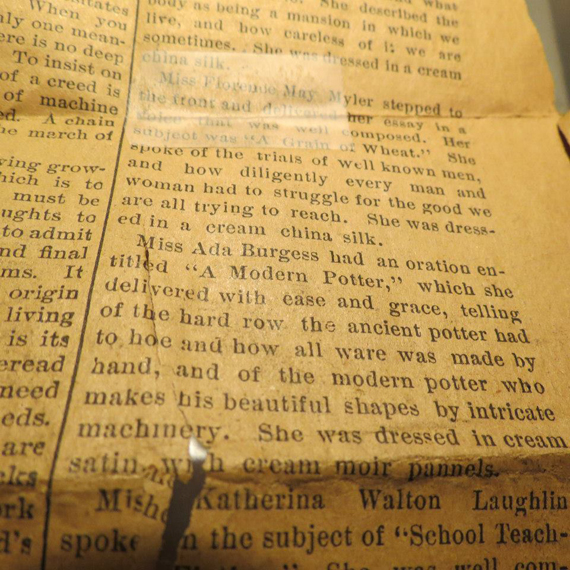 itates
When you
nly one mean-
ere is no deep
To insist on
of a creed is
of machine
ed. A chain
he march of
ving grow-
hich is to
must be
ughts to
to admit
nd final
ms. It
origin
living
is its
eread
need
eds.
are
cks
ork
d's
She described the
body as being a mansion in which we
live, and how careless of it we are
sometimes. She was dressed in a cream
china silk.
Miss Florence May Myler stepped to
the front and delivered her essay in a
voice that was well composed. Her
subject was "A Grain of Wheat." She
spoke of the trials of well known men,
and how diligently every man and
woman had to struggle for the good we
are all trying to reach. She was dress-
ed in a cream china silk.
Miss Ada Burgess had an oration en-
titled "A Modern Potter," which she
delivered with ease and grace, telling
of the hard row the ancient potter had
to hoe and how all ware was made by
hand, and of the modern potter who
makes his beautiful shapes by intricate
machinery. She was dressed in cream
satin with cream moir pannels.
Miss Katherina Walton Laughlin
spoke n the subject of "School Teach-
She was well com-